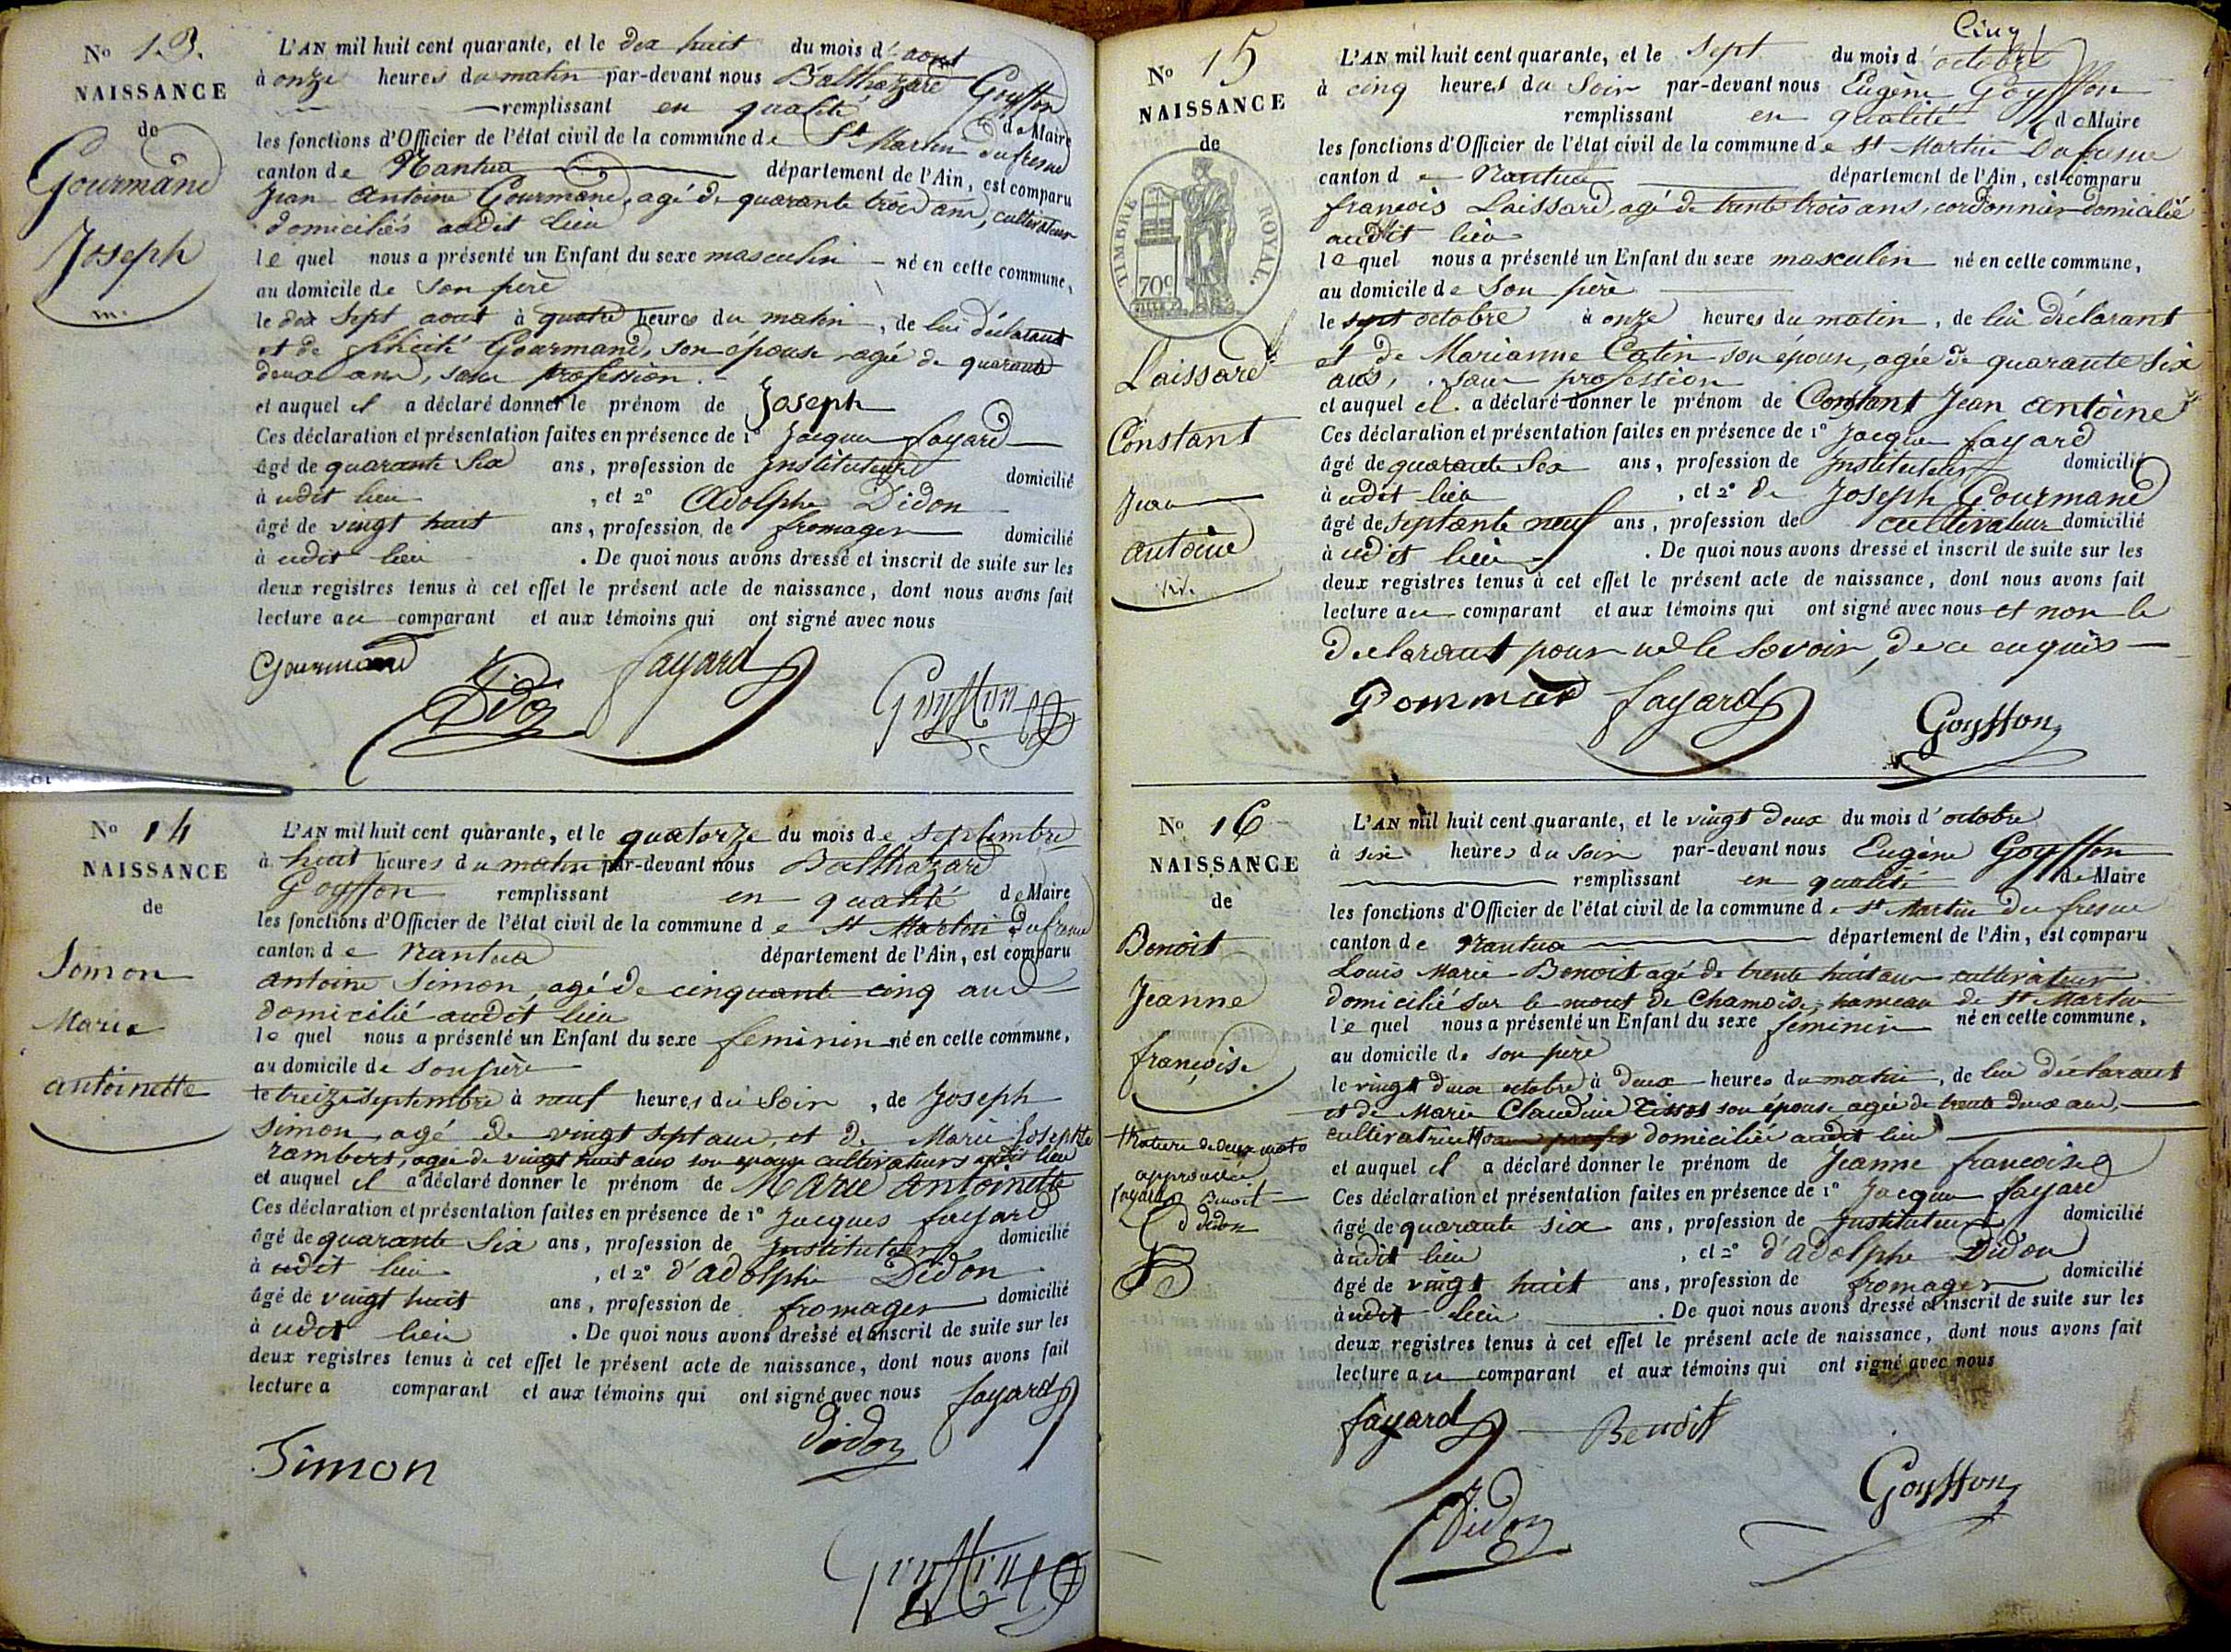 No 13.
NAISSANCE
de
Gourmand
Joseph
m.
L'AN mil huit cent quarante, et le dix huit du mois d'aout
à onze heures du matin par-devant nous Balthazard Goyffon
remplissant en qualité de Maire
les fonctions d'Officier de l'état civil de la commune de St Martin du fresne
canton de Nantua département de l'Ain, est comparu
Jean Antoine Gourmand, agé de quarante trois ans, cultivateur
domiciliés audit lieu
lequel nous a présenté un Enfant du sexe masculin né en cette commune,
au domicile de son père
le dix sept aout à quatre heures du matin, de lui déclarant
et de félicité Gourmand, son épouse agée de quarante
deux ans, sans profession.
et auquel il a déclaré donner le prénom de Joseph
Ces déclaration et présentation faites en présence de 1° Jacques fayard
âgé de quarante six ans, profession de Instituteur domicilié
à udit lieu, et 2° Adolphe Didon
âgé de vingt huit ans, profession de fromager domicilié
à udit lieu. De quoi nous avons dressé et inscrit de suite sur les
deux registres tenus à cet effet le présent acte de naissance, dont nous avons fait
lecture au comparant et aux témoins qui ont signé avec nous
Gourmand
Didon
fayard
Goyffon
No 14
NAISSANCE
de
Simon
Marie
antoinette
L'AN mil huit cent quarante, et le quatorze du mois de septembre
à huit heures du matin par-devant nous Balthazard
Goyffon remplissant en qualité de Maire
les fonctions d'Officier de l'état civil de la commune de St Martin Dufresne
canton de Nantua département de l'Ain, est comparu
antoine Simon, agé de cinquante cinq ans
domicilié audit lieu
lequel nous a présenté un Enfant du sexe feminin né en cette commune,
au domicile de son père
le treize septembre à neuf heures du soir, de Joseph
Simon, agé de vingt sept ans, et de Marie Josephte
rambert, agée de vingt huit ans son epouse cultivateurs audit lieu
et auquel il a déclaré donner le prénom de Marie antoinette
Ces déclaration et présentation faites en présence de 1° Jacques fayard
âgé de quarante six ans, profession de Instituteur domicilié
à udit lieu, et 2° d'adolphe Didon
âgé de vingt huit ans, profession de fromager domicilié
à udit lieu. De quoi nous avons dressé et inscrit de suite sur les
deux registres tenus à cet effet le présent acte de naissance, dont nous avons fait
lecture a comparant et aux témoins qui ont signé avec nous
fayard
Didon
Simon
Goyffon
No 15
NAISSANCE
de
TIMBRE ROYAL.
70c
Laissard
Constant
Jean
antoine
Cinq
L'AN mil huit cent quarante, et le sept du mois d'octobre
à cinq heures du soir par-devant nous Eugène Goyffon
remplissant en qualité de Maire
les fonctions d'Officier de l'état civil de la commune de St Martin Dufresne
canton de Nantua département de l'Ain, est comparu
françois Laissard, agé de trente trois ans, cordonnier domicilié
audit lieu
lequel nous a présenté un Enfant du sexe masculin né en cette commune,
au domicile de son père
le sept octobre à onze heures du matin, de lui déclarant
et de Marianne Catin son épouse, agée de quarante six
ans, sans profession
et auquel il a déclaré donner le prénom de Constant Jean antoine
Ces déclaration et présentation faites en présence de 1° Jacques fayard
âgé de quarante six ans, profession de Instituteur domicilié
à udit lieu, et 2° de Joseph Gourmand
âgé de septante neuf ans, profession de cultivateur domicilié
à udit lieu. De quoi nous avons dressé et inscrit de suite sur les
deux registres tenus à cet effet le présent acte de naissance, dont nous avons fait
lecture au comparant et aux témoins qui ont signé avec nous et non le
declarant pour ne le savoir, de ce enquis
fayard
Goyffon
No 16
NAISSANCE
de
Benoît
Jeanne
françoise
Rature de deux mots
approuvée
fayard Benoit
Didon
L'AN mil huit cent quarante, et le vingt deux du mois d'octobre
à six heures du soir par-devant nous Eugène Goyffon
remplissant en qualité de Maire
les fonctions d'Officier de l'état civil de la commune de St Martin Du fresne
canton de Nantua département de l'Ain, est comparu
Louis Marie Benoit agé de trente huit ans cultivateur
domicilié sur le mont de Chamoise, hameau de St Martin
lequel nous a présenté un Enfant du sexe feminin né en cette commune,
au domicile de son père
le vingt deux octobre à deux heures du matin, de lui déclarant
et de Marie Claudine Tissot son épouse agée de trente deux ans,
cultivatrice sans profes domiciliée audit lieu
et auquel il a déclaré donner le prénom de Jeanne françoise
Ces déclaration et présentation faites en présence de 1° Jacques fayard
âgé de quarante six ans, profession de Instituteur domicilié
à udit lieu, et 2° d'adolphe Didon
âgé de vingt huit ans, profession de fromager domicilié
à udit lieu. De quoi nous avons dressé et inscrit de suite sur les
deux registres tenus à cet effet le présent acte de naissance, dont nous avons fait
lecture au comparant et aux témoins qui ont signé avec nous
fayard
Benoit
Didon
Goyffon